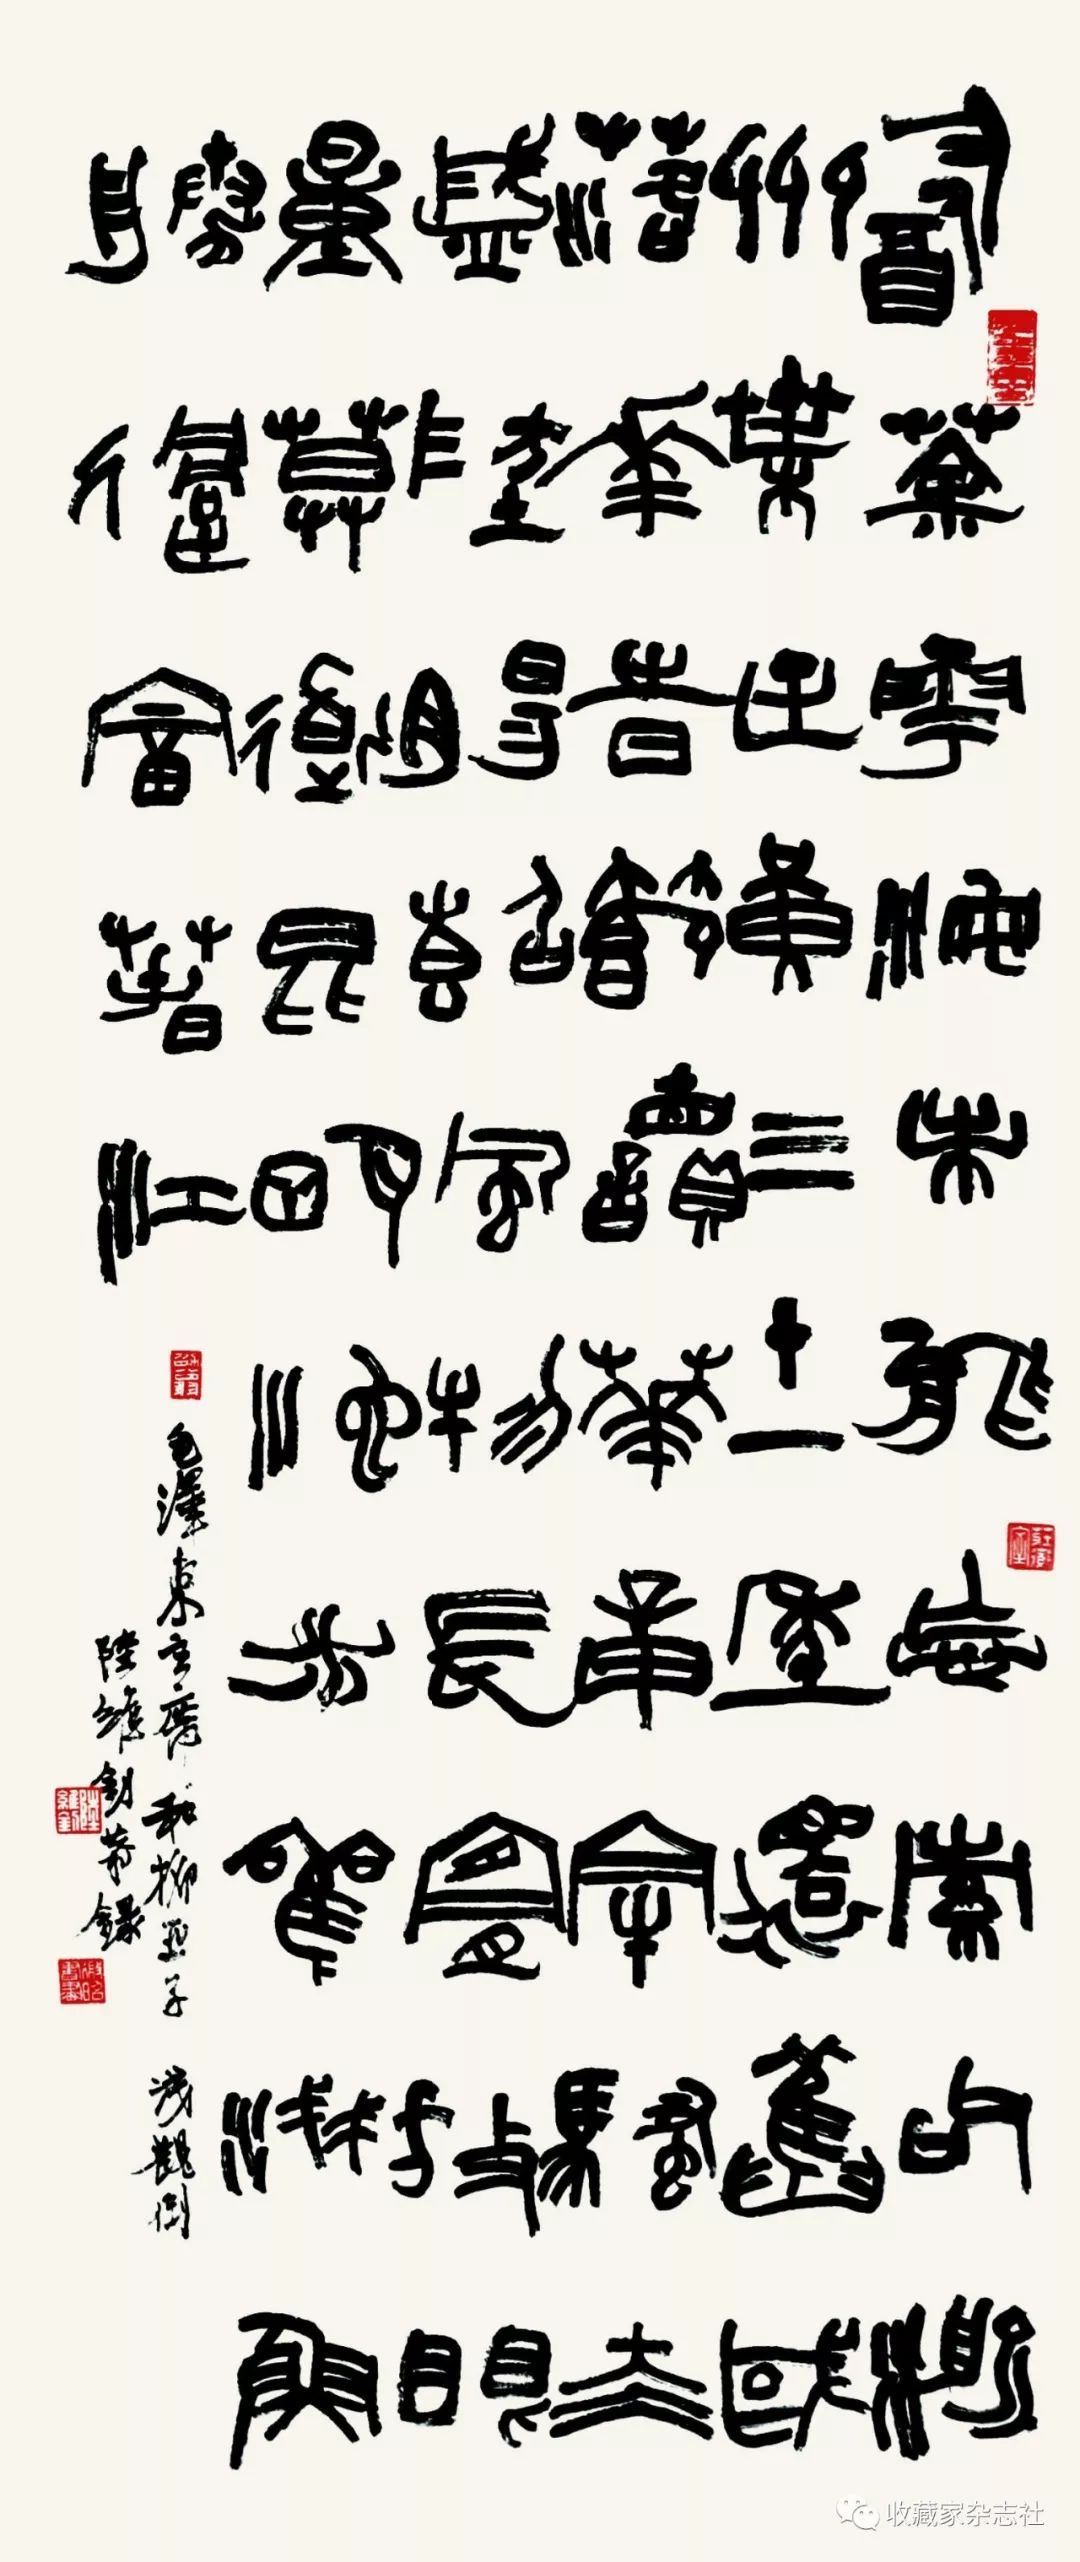 飲茶粵海未能忘索句渝
州葉正黃三十一年還舊國
落花時節讀華章牢騷太
盛防腸斷風物長宜放眼
量莫道昆明池水觀淺魚
勝過富春江
毛澤東主席和柳亞子 淺觀倒
陸維釗恭錄
收藏家杂志社